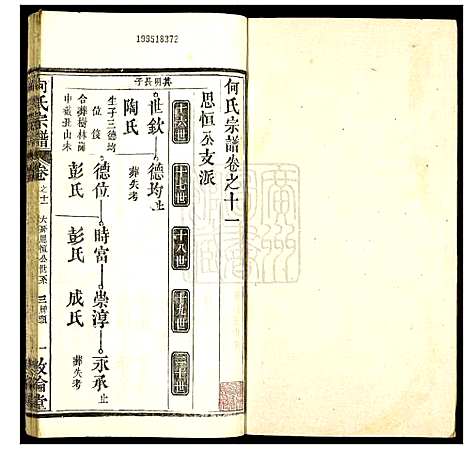 109518372
何氏宗譜卷之十一
思恒公支派
十六世
十七世
十八世
十九世
二十世
其明長子
世欽
德均 止
葬失考
陶氏
生子三德均
位
合葬樹林
德位
時富
崇淳
永承 止
葬失考
彭氏
彭氏
成氏
何氏宗譜
卷之十一
思恒公世系
一
敦倫堂